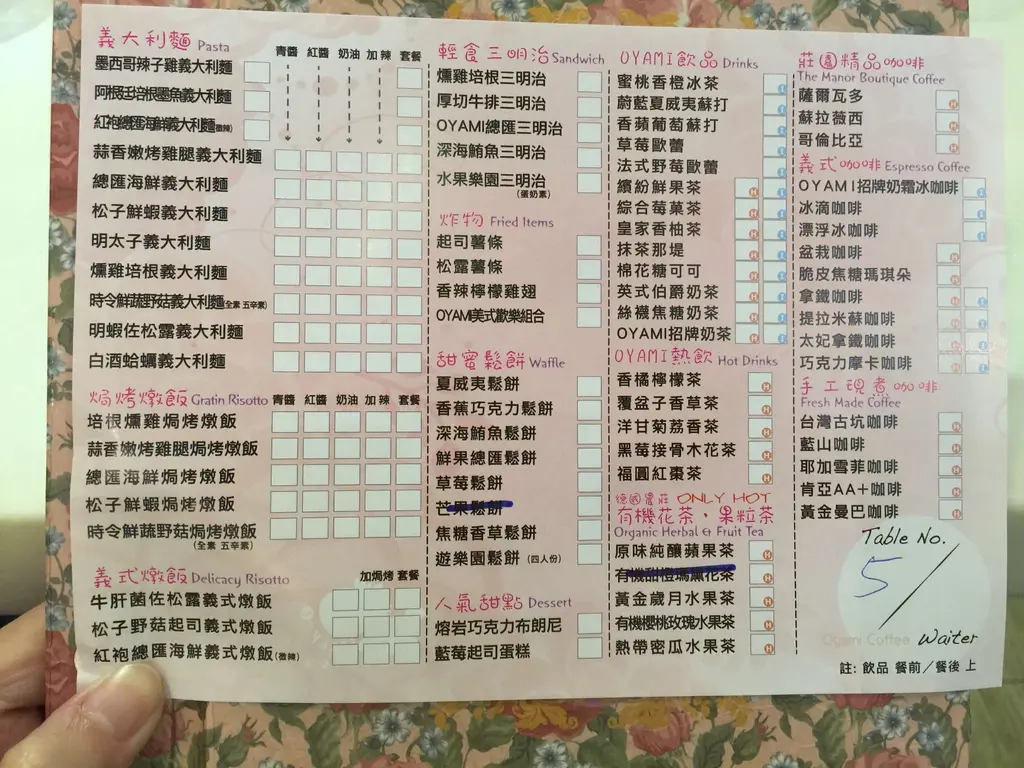 義大利麵 Pasta
青醬 紅醬 奶油 加辣 套餐
墨西哥辣子雞義大利麵
阿根廷培根墨魚義大利麵
紅袍總匯海鮮義大利麵(微辣)
蒜香嫩烤雞腿義大利麵
總匯海鮮義大利麵
松子鮮蝦義大利麵
明太子義大利麵
燻雞培根義大利麵
時令鮮蔬野菇義大利麵(全素 五辛素)
明蝦佐松露義大利麵
白酒蛤蠣義大利麵
焗烤燉飯 Gratin Risotto
青醬 紅醬 奶油 加辣 套餐
培根燻雞焗烤燉飯
蒜香嫩烤雞腿焗烤燉飯
總匯海鮮焗烤燉飯
松子鮮蝦焗烤燉飯
時令鮮蔬野菇焗烤燉飯
(全素 五辛素)
義式燉飯 Delicacy Risotto
加焗烤 套餐
牛肝菌佐松露義式燉飯
松子野菇起司義式燉飯
紅袍總匯海鮮義式燉飯(微辣)
輕食三明治 Sandwich
燻雞培根三明治
厚切牛排三明治
OYAMI總匯三明治
深海鮪魚三明治
水果樂園三明治
(蛋奶素)
炸物 Fried Items
起司薯條
松露薯條
香辣檸檬雞翅
OYAMI美式歡樂組合
甜蜜鬆餅 Waffle
夏威夷鬆餅
香蕉巧克力鬆餅
深海鮪魚鬆餅
鮮果總匯鬆餅
草莓鬆餅
芒果鬆餅
焦糖香草鬆餅
遊樂園鬆餅 (四人份)
人氣甜點 Dessert
熔岩巧克力布朗尼
藍莓起司蛋糕
OYAMI飲品 Drinks
蜜桃香橙冰茶
蔚藍夏威夷蘇打
香蘋葡萄蘇打
草莓歐蕾
法式野莓歐蕾
繽紛鮮果茶
綜合莓菓茶
皇家香柚茶
抹茶那堤
棉花糖可可
英式伯爵奶茶
絲襪焦糖奶茶
OYAMI招牌奶茶
OYAMI熱飲 Hot Drinks
香橘檸檬茶
覆盆子香草茶
洋甘菊荔香茶
黑莓接骨木花茶
福圓紅棗茶
德國農莊 ONLY HOT
有機花茶‧果粒茶
Organic Herbal & Fruit Tea
原味純釀蘋果茶
有機甜橙瑪黛花茶
黃金歲月水果茶
有機櫻桃玫瑰水果茶
熱帶密瓜水果茶
莊園精品咖啡
The Manor Boutique Coffee
薩爾瓦多
蘇拉薇西
哥倫比亞
義式咖啡 Espresso Coffee
OYAMI招牌奶霜冰咖啡
冰滴咖啡
漂浮冰咖啡
盆栽咖啡
脆皮焦糖瑪琪朵
拿鐵咖啡
提拉米蘇咖啡
太妃拿鐵咖啡
巧克力摩卡咖啡
手工現煮咖啡
Fresh Made Coffee
台灣古坑咖啡
藍山咖啡
耶加雪菲咖啡
肯亞AA+咖啡
黃金曼巴咖啡
Table No.
5
Oyami Coffee Waiter
註: 飲品 餐前／餐後 上